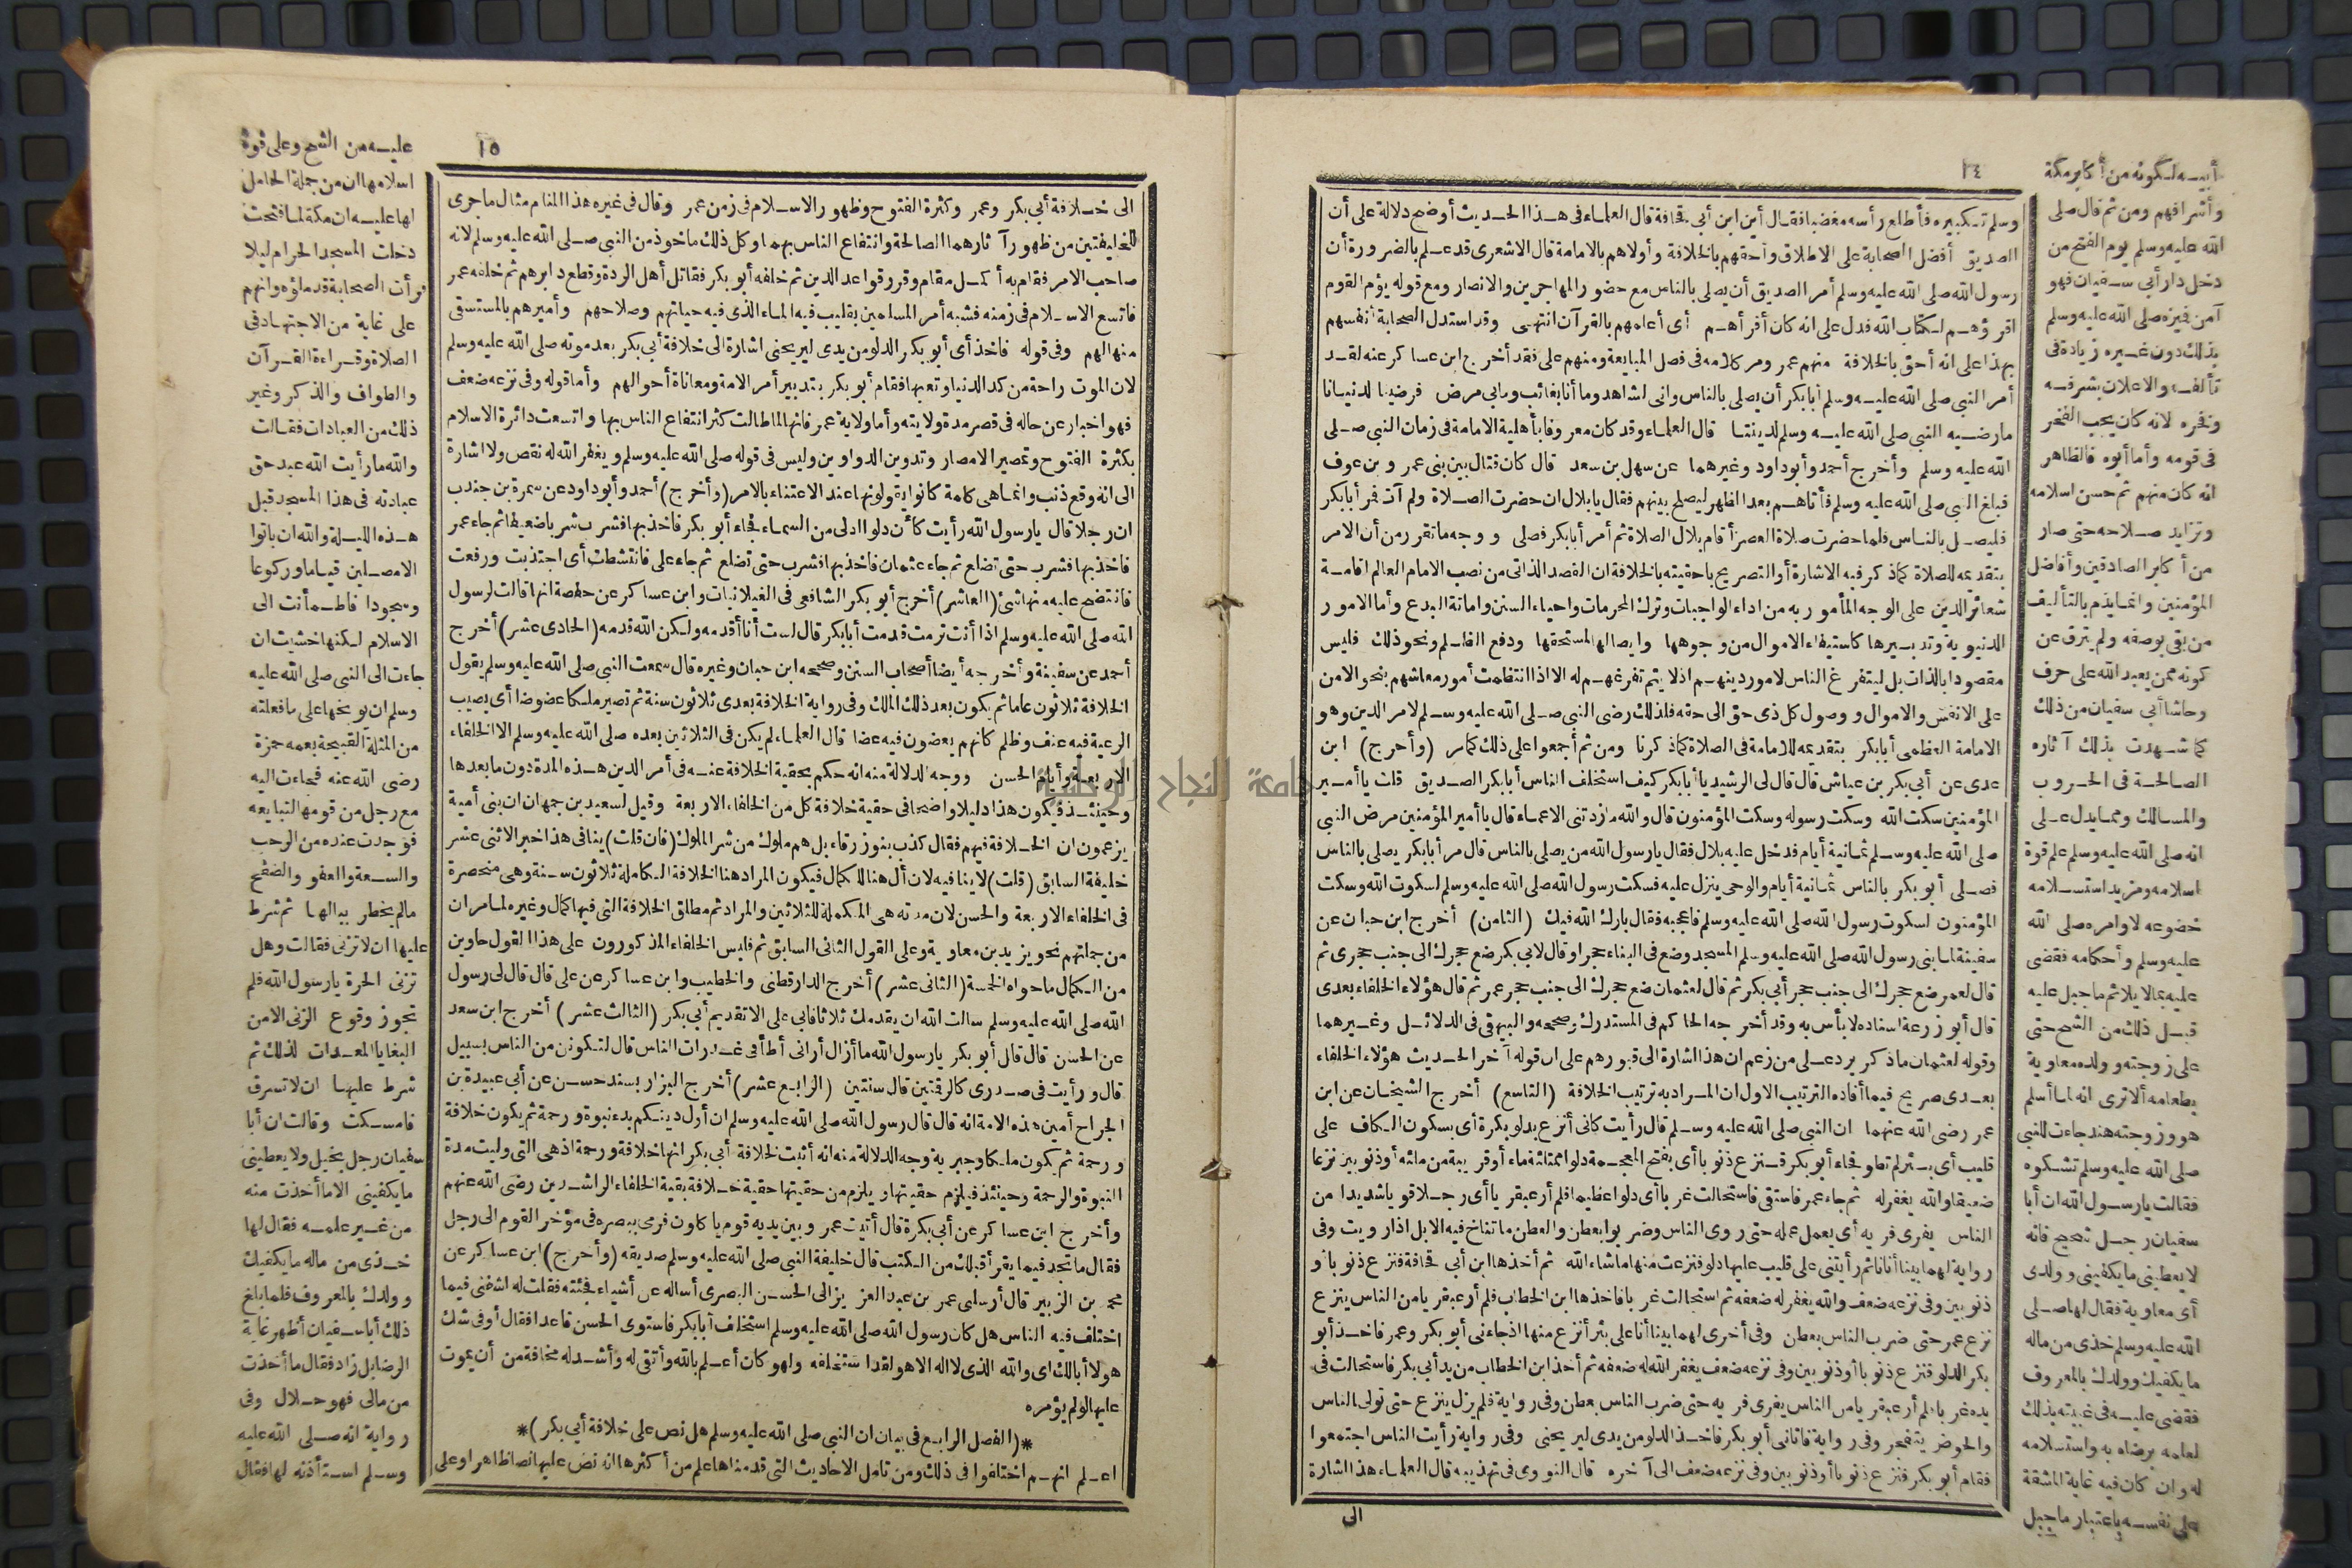 ١٤
وسلم تكبيره فأطلع رأسه مغضبا فقال أين ابن أبي قحافة قال العلماء فى هذا الحديث أوضح دلالة على أن
الصديق أفضل الصحابة على الاطلاق وأحقهم بالخلافة وأولاهم بالامامة قال الاشعرى قد علم بالضرورة أن
رسول الله صلى الله عليه وسلم أمر الصديق أن يصلى بالناس مع حضور المهاجرين والانصار ومع قوله يؤم القوم
اقرؤهم لكتاب الله فدل على انه كان أقرأهم أى أعلمهم بالقرآن انتهى وقد استدل الصحابة أنفسهم
بهذا على انه أحق بالخلافة منهم عمر ومر كلامه فى فصل المبايعة ومنهم على فقد أخرج ابن عساكر عنه لقد
أمر النبى صلى الله عليه وسلم أبا بكر أن يصلى بالناس وانى لشاهد وما أنا بغائب وما بى مرض فرضينا لدنيانا
ما رضيه النبى صلى الله عليه وسلم لديننا قال العلماء وقد كان معروفا بأهلية الامامة فى زمان النبى صلى
الله عليه وسلم وأخرج أحمد وأبو داود وغيرهما عن سهل بن سعد قال كان قتال بين بنى عمرو بن عوف
فبلغ النبى صلى الله عليه وسلم فأتاهم بعد الظهر ليصلح بينهم فقال يا بلال ان حضرت الصلاة ولم آت فمر أبا بكر
فليصل بالناس فلما حضرت صلاة العصر أقام بلال الصلاة ثم أمر أبا بكر فصلى ووجه ما تقرر من أن الامر
بتقديمه للصلاة كما ذكر فيه الاشارة أو التصريح باحقيته بالخلافة ان القصد الذاتى من نصب الامام العالم اقامة
شعائر الدين على الوجه المأمور به من اداء الواجبات وترك المحرمات واحياء السنن واماتة البدع وأما الامور
الدنيوية وتدبيرها كاستيفاء الاموال من وجوهها وايصالها لمستحقها ودفع الظلم ونحو ذلك فليس
مقصودا بالذات بل ليتفرغ الناس لامور دينهم اذ لا يتم تفرغهم له الا اذا انتظمت أمور معاشهم بنحو الامن
على الانفس والاموال ووصول كل ذى حق الى حقه فلذلك رضى النبى صلى الله عليه وسلم لامر الدين وهو
الامامة العظمى أبا بكر بتقديمه للامامة فى الصلاة كما ذكرنا ومن ثم أجمعوا على ذلك كمامر (وأخرج) ابن
عدى عن أبى بكر بن عياش قال قال لى الرشيد يا أبا بكر كيف استخلف الناس أبا بكر الصديق قلت يا أمير
المؤمنين سكت الله وسكت رسوله وسكت المؤمنون قال والله ما زدتنى الا عماء قال يا أمير المؤمنين مرض النبى
صلى الله عليه وسلم ثمانية أيام فدخل عليه بلال فقال يا رسول الله من يصلى بالناس قال مر أبا بكر يصلى بالناس
فصلى أبو بكر بالناس ثمانية أيام والوحى ينزل عليه فسكت رسول الله صلى الله عليه وسلم لسكوت الله وسكت
المؤمنون لسكوت رسول الله صلى الله عليه وسلم فاعجبه فقال بارك الله فيك (الثامن) أخرج ابن حبان عن
سفينة لما بنى رسول الله صلى الله عليه وسلم المسجد وضع فى البناء حجرا وقال لابى بكر ضع حجرك الى جنب حجرى ثم
قال لعمر ضع حجرك الى جنب حجر أبى بكر ثم قال لعثمان ضع حجرك الى جنب حجر عمر ثم قال هؤلاء الخلفاء بعدى
قال أبو زرعة اسناده لا بأس به وقد أخرجه الحاكم فى المستدرك وصححه والبيهقى فى الدلائل وغيرهما
وقوله لعثمان ما ذكر يرد على من زعم ان هذا اشارة الى قبورهم على ان قوله آخر الحديث هؤلاء الخلفاء
بعدى صريح فيما أفاده الترتيب الاول ان المراد به ترتيب الخلافة (التاسع) أخرج الشيخان عن ابن
عمر رضى الله عنهما ان النبى صلى الله عليه وسلم قال رأيت كانى أنزع بدلو بكرة أى بسكون الكاف على
قليب أى بئر لم تطو فجاء أبو بكر فنزع ذنوبا أى بفتح المعجمة دلوا ممتلئة ماء أو قريبة من ملئه أو ذنوبين نزعا
ضعيفا والله يغفر له ثم جاء عمر فاستقى فاستحالت غربا أى دلوا عظيما فلم أر عبقريا أى رجلا قويا شديدا من
الناس يفرى فريه أى يعمل عمله حتى روى الناس وضربوا بعطن والعطن ما تناخ فيه الابل اذا رويت وفى
رواية لهما بينا أنا نائم رأيتنى على قليب عليها دلو فنزعت منها ما شاء الله ثم أخذها ابن أبى قحافة فنزع ذنوبا أو
ذنوبين وفى نزعه ضعف والله يغفر له ضعفه ثم استحالت غربا فاخذها ابن الخطاب فلم أر عبقريا من الناس ينزع
نزع عمر حتى ضرب الناس بعطن وفى أخرى لهما بينا أنا على بئر أنزع منها اذ جاءنى أبو بكر وعمر فاخذ أبو
بكر الدلو فنزع ذنوبا أو ذنوبين وفى نزعه ضعف يغفر الله له ضعفه ثم أخذ ابن الخطاب من يد أبى بكر فاستحالت فى
يده غربا فلم أر عبقريا من الناس يفرى فريه حتى ضرب الناس بعطن وفى رواية فلم يزل ينزع حتى تولى الناس
والحوض يتفجر وفى رواية فاتانى أبو بكر فاخذ الدلو من يدى ليريحنى وفى رواية رأيت الناس اجتمعوا
فقام أبو بكر فنزع ذنوبا أو ذنوبين وفى نزعه ضعف الى آخره قال النووى فى تهذيبه قال العلماء هذا اشارة
الى
أبيه لكونه من أكابر مكة
وأشرافهم ومن ثم قال صلى
الله عليه وسلم يوم الفتح من
دخل دار أبى سفيان فهو
آمن فميزه صلى الله عليه وسلم
بذلك دون غيره زيادة فى
تألفه والاعلان بشرفه
وفخره لانه كان يحب الفخر
فى قومه وأما أبوه فالظاهر
انه كان منهم ثم حسن اسلامه
وتزايد صلاحه حتى صار
من أكابر الصادقين وأفاضل
المؤمنين وانما يذم بالتأليف
من بقى بوصفه ولم يترق عن
كونه ممن يعبد الله على حرف
وحاشا أبى سفيان من ذلك
كما شهدت بذلك آثاره
الصالحة فى الحروب
والمسالك ومما يدل على
انه صلى الله عليه وسلم علم قوة
اسلامه ومزيد استسلامه
خضوعه لاوامره صلى الله
عليه وسلم وأحكامه فقضى
عليه بما لا يلائم ما جبل عليه
قبل ذلك من الشح حتى
على زوجته وولده معاوية
يطعامه ألا ترى انه لما أسلم
هو وزوجته هند جاءت للنبى
صلى الله عليه وسلم تشكوه
فقالت يا رسول الله ان أبا
سفيان رجل شحيح فانه
لا يعطينى ما يكفينى وولدى
أى معاوية فقال لها صلى
الله عليه وسلم خذى من ماله
ما يكفيك وولدك بالمعروف
فقضى عليه فى غيبته بذلك
لعلمه برضاه به واستسلامه
له وان كان فيه غاية المشقة
على نفسه باعتبار ما جبل
١٥
الى خلافة أبى بكر وعمر وكثرة الفتوح وظهور الاسلام فى زمن عمر وقال فى غيره هذا المنام مثال ما جرى
للخليفتين من ظهور آثارهما الصالحة وانتفاع الناس بهما وكل ذلك ماخوذ من النبى صلى الله عليه وسلم لانه
صاحب الامر فقام به أكمل مقام وقرر قواعد الدين ثم خلفه أبو بكر فقاتل أهل الردة وقطع دابرهم ثم خلفه عمر
فاتسع الاسلام فى زمنه فشبه أمر المسلمين بقليب فيه الماء الذى فيه حياتهم وصلاحهم وأميرهم بالمستسقى
منها لهم وفى قوله فاخذ أى أبو بكر الدلو من يدى ليريحنى اشارة الى خلافة أبى بكر بعد موته صلى الله عليه وسلم
لان الموت راحة من كد الدنيا وتعبها فقام أبو بكر بتدبير أمر الامة ومعاناة أحوالهم وأما قوله وفى نزعه ضعف
فهو اخبار عن حاله فى قصر مدة ولايته وأما ولاية عمر فانها لما طالت كثر انتفاع الناس بها واتسعت دائرة الاسلام
بكثرة الفتوح وتمصير الامصار وتدوين الدواوين وليس فى قوله صلى الله عليه وسلم ويغفر الله له نقص ولا اشارة
الى انه وقع ذنب وانما هى كلمة كانوا يقولونها عند الاعتناء بالامر (وأخرج) أحمد وأبو داود عن سمرة بن جندب
ان رجلا قال يا رسول الله رأيت كأن دلوا ادلى من السماء فجاء أبو بكر فاخذ بها فشرب شربا ضعيفا ثم جاء عمر
فاخذ بها فشرب حتى تضلع ثم جاء عثمان فاخذ بها فشرب حتى تضلع ثم جاء على فانتشطت أى اجتذبت ورفعت
فانتضح عليه منها شئ (العاشر) أخرج أبو بكر الشافعى فى الغيلانيات وابن عساكر عن حفصة انها قالت لرسول
الله صلى الله عليه وسلم اذا أنت مرضت قدمت أبا بكر قال لست أنا أقدمه ولكن الله قدمه (الحادى عشر) أخرج
أحمد عن سفينة وأخرجه أيضا أصحاب السنن وصححه ابن حبان وغيره قال سمعت النبى صلى الله عليه وسلم يقول
الخلافة ثلاثون عاما ثم يكون بعد ذلك الملك وفى رواية الخلافة بعدى ثلاثون سنة ثم تصير ملكا عضوضا أى يصيب
الرعية فيه عنف وظلم كانهم يعضون فيه عضا قال العلماء لم يكن فى الثلاثين بعده صلى الله عليه وسلم الا الخلفاء
الاربعة وأيام الحسن ووجه الدلالة منه انه حكم بحقية الخلافة عنه فى أمر الدين هذه المدة دون ما بعدها
وحينئذ فيكون هذا دليلا واضحا فى حقية خلافة كل من الخلفاء الاربعة وقيل لسعيد بن جمهان ان بنى أمية
يزعمون ان الخلافة فيهم فقال كذب بنو زرقاء بل هم ملوك من شر الملوك (فان قلت) ينافى هذا خبر الاثنى عشر
خليفة السابق (قلت) لا ينافيه لان أل هنا للكمال فيكون المراد هنا الخلافة الكاملة ثلاثون سنة وهى منحصرة
فى الخلفاء الاربعة والحسن لان مدته هى المكملة للثلاثين والمراد ثم مطلق الخلافة التى فيها كمال وغيره لما مر ان
من جملتهم نحو يزيد بن معاوية وعلى القول الثانى السابق ثم فليس الخلفاء المذكورون على هذا القول حاوين
من الكمال ما حواه الخمسة (الثانى عشر) أخرج الدارقطنى والخطيب وابن عساكر عن على قال قال لى رسول
الله صلى الله عليه وسلم سالت الله ان يقدمك ثلاثا فابى على الا تقديم أبى بكر (الثالث عشر) أخرج ابن سعد
عن الحسن قال قال أبو بكر يا رسول الله ما أزال أرانى أطأ فى عذرات الناس قال لتكونن من الناس بسبيل
قال ورأيت فى صدرى كالرقمتين قال سنتين (الرابع عشر) أخرج البزار بسند حسن عن أبى عبيدة بن
الجراح أمين هذه الامة انه قال قال رسول الله صلى الله عليه وسلم ان أول دينكم بدء نبوة ورحمة ثم يكون خلافة
ورحمة ثم يكون ملكا وجبرية وجه الدلالة منه انه أثبت لخلافة أبى بكر انها خلافة ورحمة اذ هى التى وليت مدة
النبوة والرحمة وحينئذ فيلزم حقيتها ويلزم من حقيتها حقية خلافة بقية الخلفاء الراشدين رضى الله عنهم
وأخرج ابن عساكر عن أبى بكرة قال أتيت عمر وبين يديه قوم ياكلون فرمى ببصره فى مؤخر القوم الى رجل
فقال ما تجد فيما يقرأ قبلك من الكتب قال خليفة النبى صلى الله عليه وسلم صديقه (وأخرج) ابن عساكر عن
محمد بن الزبير قال أرسلنى عمر بن عبد العزيز الى الحسن البصرى أساله عن أشياء فجئته فقلت له اشفنى فيما
اختلف فيه الناس هل كان رسول الله صلى الله عليه وسلم استخلف أبا بكر فاستوى الحسن قاعدا فقال أوفى شك
هو لا أبا لك اى والله الذى لا اله الا هو لقد استخلفه ولهو كان أعلم بالله وأتقى له وأشد له مخافة من أن يموت
عليها لو لم يؤمره
*(الفصل الرابع فى بيان ان النبى صلى الله عليه وسلم هل نص على خلافة أبى بكر)*
اعلم انهم اختلفوا فى ذلك ومن تامل الاحاديث التى قدمناها علم من أكثرها انه نص عليها نصا ظاهرا وعلى
عليه من الشح وعلى قوة
اسلامها ان من جملة الحامل
لها عليه ان مكة لما فتحت
دخلت المسجد الحرام ليلا
فرأت الصحابة قد ملؤه وانهم
على غاية من الاجتهاد فى
الصلاة وقراءة القرآن
والطواف والذكر وغير
ذلك من العبادات فقالت
والله ما رأيت الله عبد حق
عبادته فى هذا المسجد قبل
هذه الليلة والله ان باتوا
الا مصلين قياما وركوعا
وسجودا فاطمأنت الى
الاسلام لكنها خشيت ان
جاءت الى النبى صلى الله عليه
وسلم ان يوبخها على ما فعلته
من المثلة القبيحة بعمه حمزة
رضى الله عنه فجاءت اليه
مع رجل من قومها لتبايعه
فوجدت عنده من الرحب
والسعة والعفو والصفح
ما لم يخطر ببالها ثم شرط
عليها ان لا تزنى فقالت وهل
تزنى الحرة يا رسول الله فلم
تجوز وقوع الزنى الا من
البغايا المعدات لذلك ثم
شرط عليها ان لا تسرق
فامسكت وقالت ان أبا
سفيان رجل بخيل ولا يعطينى
ما يكفينى الا ما أخذت منه
من غير علمه فقال لها
خذى من ماله ما يكفيك
وولدك بالمعروف فلما بلغ
ذلك أبا سفيان أظهر غاية
الرضا بل زاد فقال ما أخذت
من مالى فهو حلال وفى
رواية انه صلى الله عليه
وسلم استأذنه لها فقال
جامعة النجاح الوطنية